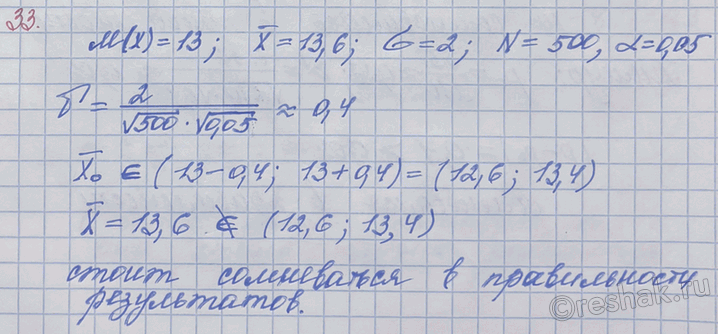 33.
M(x) = 13; X̅ = 13,6; σ = 2; N = 500, α = 0,05
σ = 2 / (√500 · √0,05) ≈ 0,4
X̅₀ ∈ (13 – 0,4; 13 + 0,4) = (12,6; 13,4)
X̅ = 13,6 ∉ (12,6; 13,4)
стоит сомневаться в правильности
результатов.
©reshak.ru